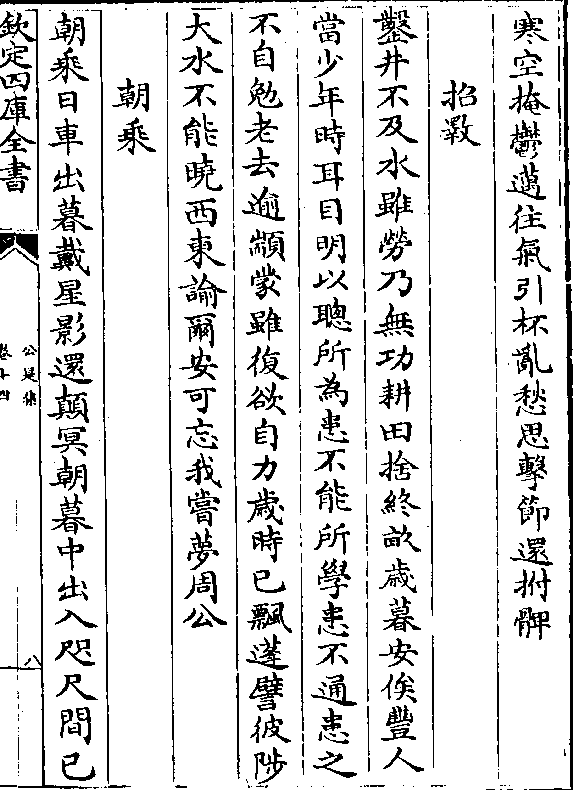 寒空掩鬱邁往氣引杯亂愁思擊節還拊髀
招斁
鑿井不及水雖勞乃無功耕田捨終畝歲暮安俟豐人
當少年時耳目明以聰所為患不能所學患不通患之
不自勉老去逾顓蒙雖復欲自力歲時已飄蓬譬彼陟
大水不能曉西東諭爾安可忘我嘗夢周公
朝乘
朝乘日車出暮戴星影還顛冥朝暮中出入咫尺間已
欽定四庫全書
公是集
卷十四
八